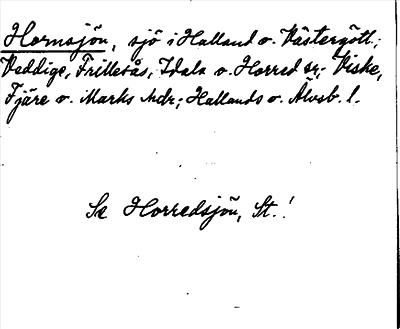 Hornsjön, sjö i Halland o. Västergötl.;
Veddige, Frillesås, Idala o. Horred sr.- Viske,
Fjäre o. Marks hdr; Hallands o. Älvsb. l.
Se Horredsjön, St.!